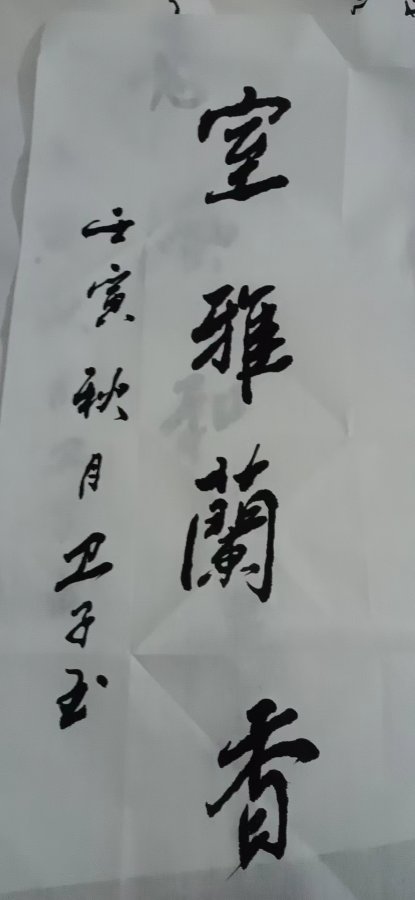 室雅蘭香
壬寅秋月卫子玉